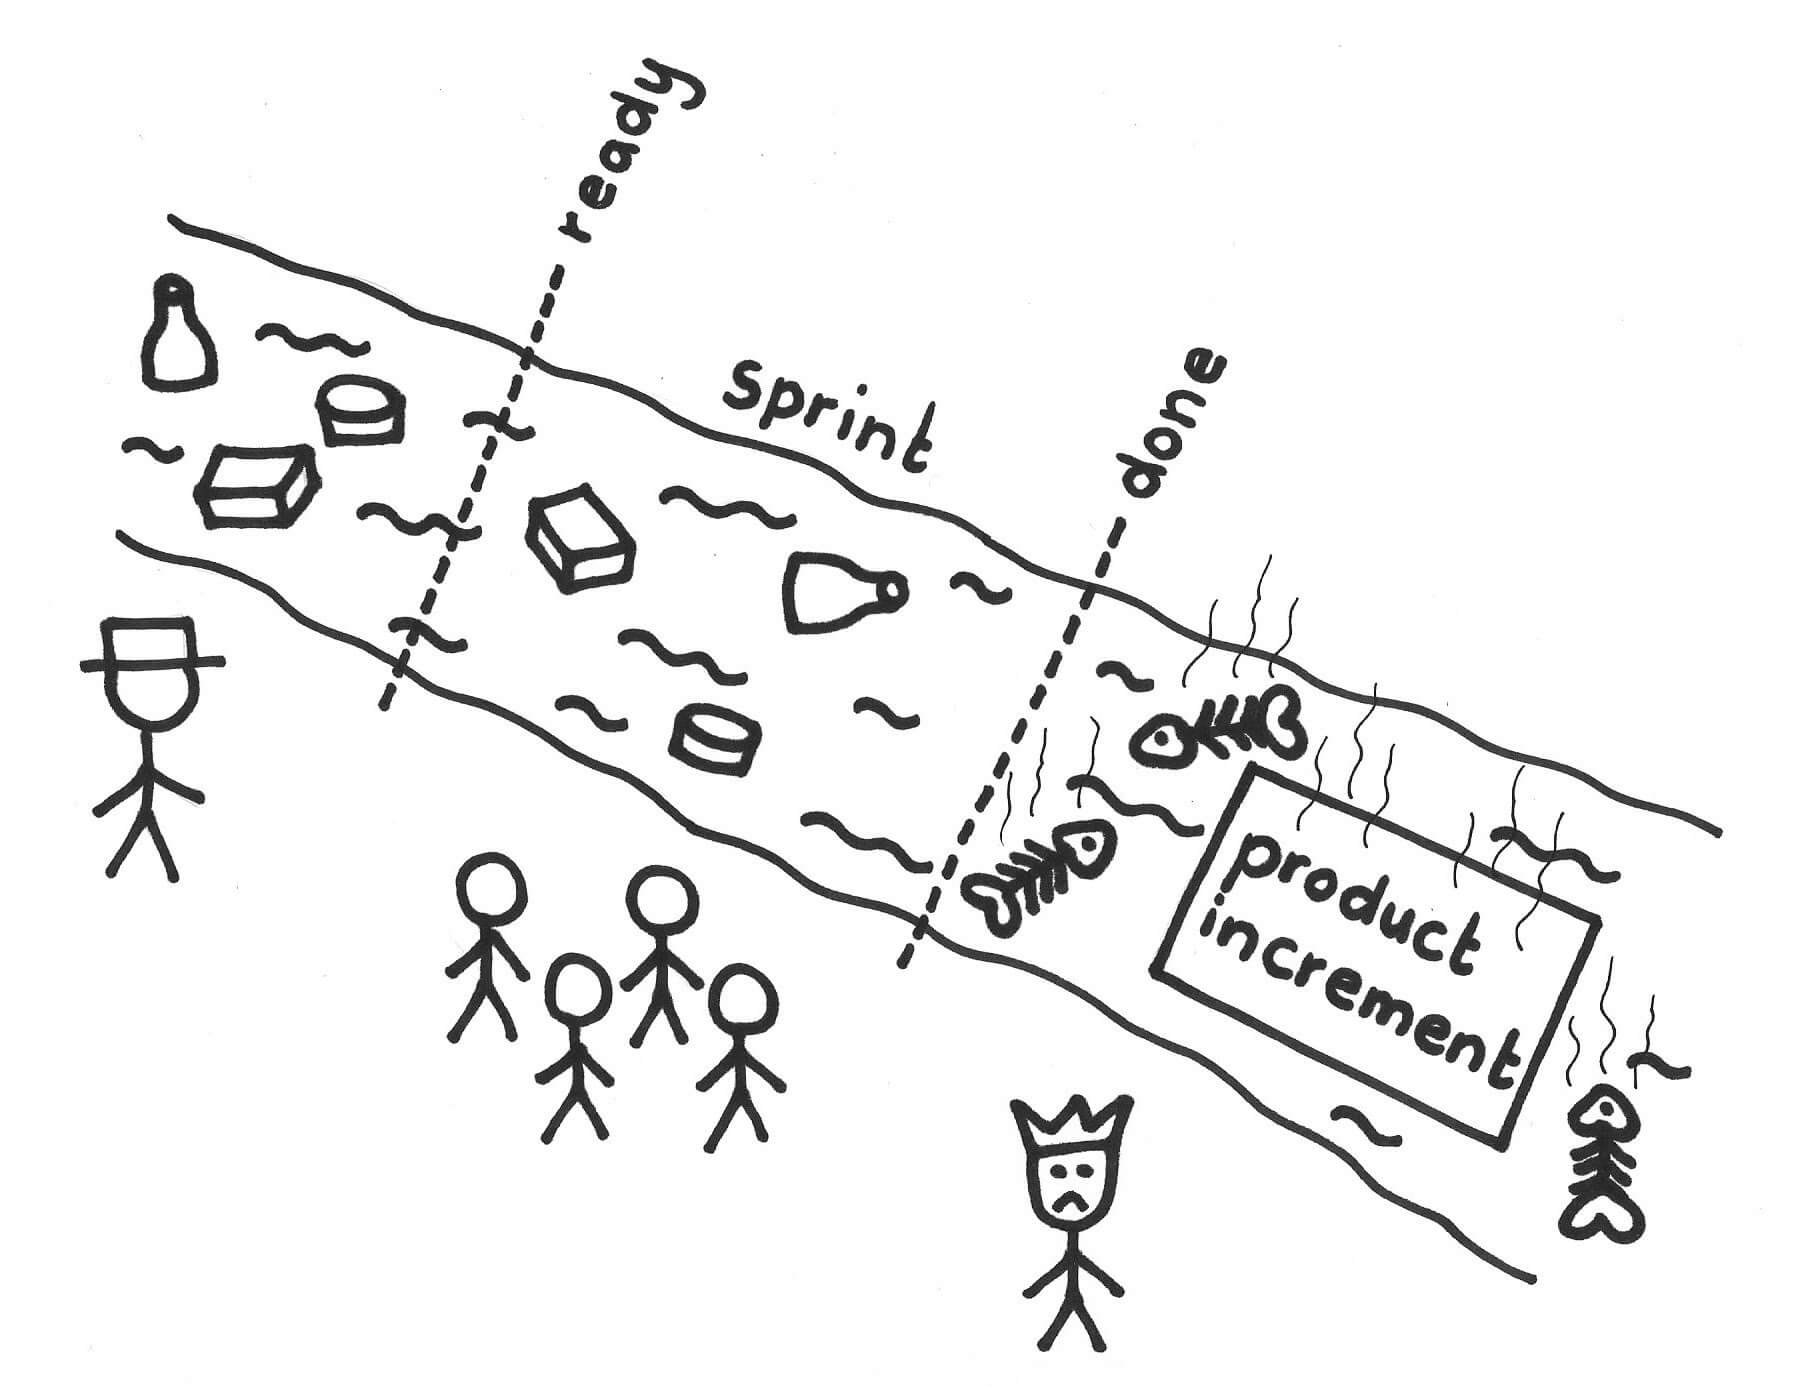 ready
sprint
done
product
increment